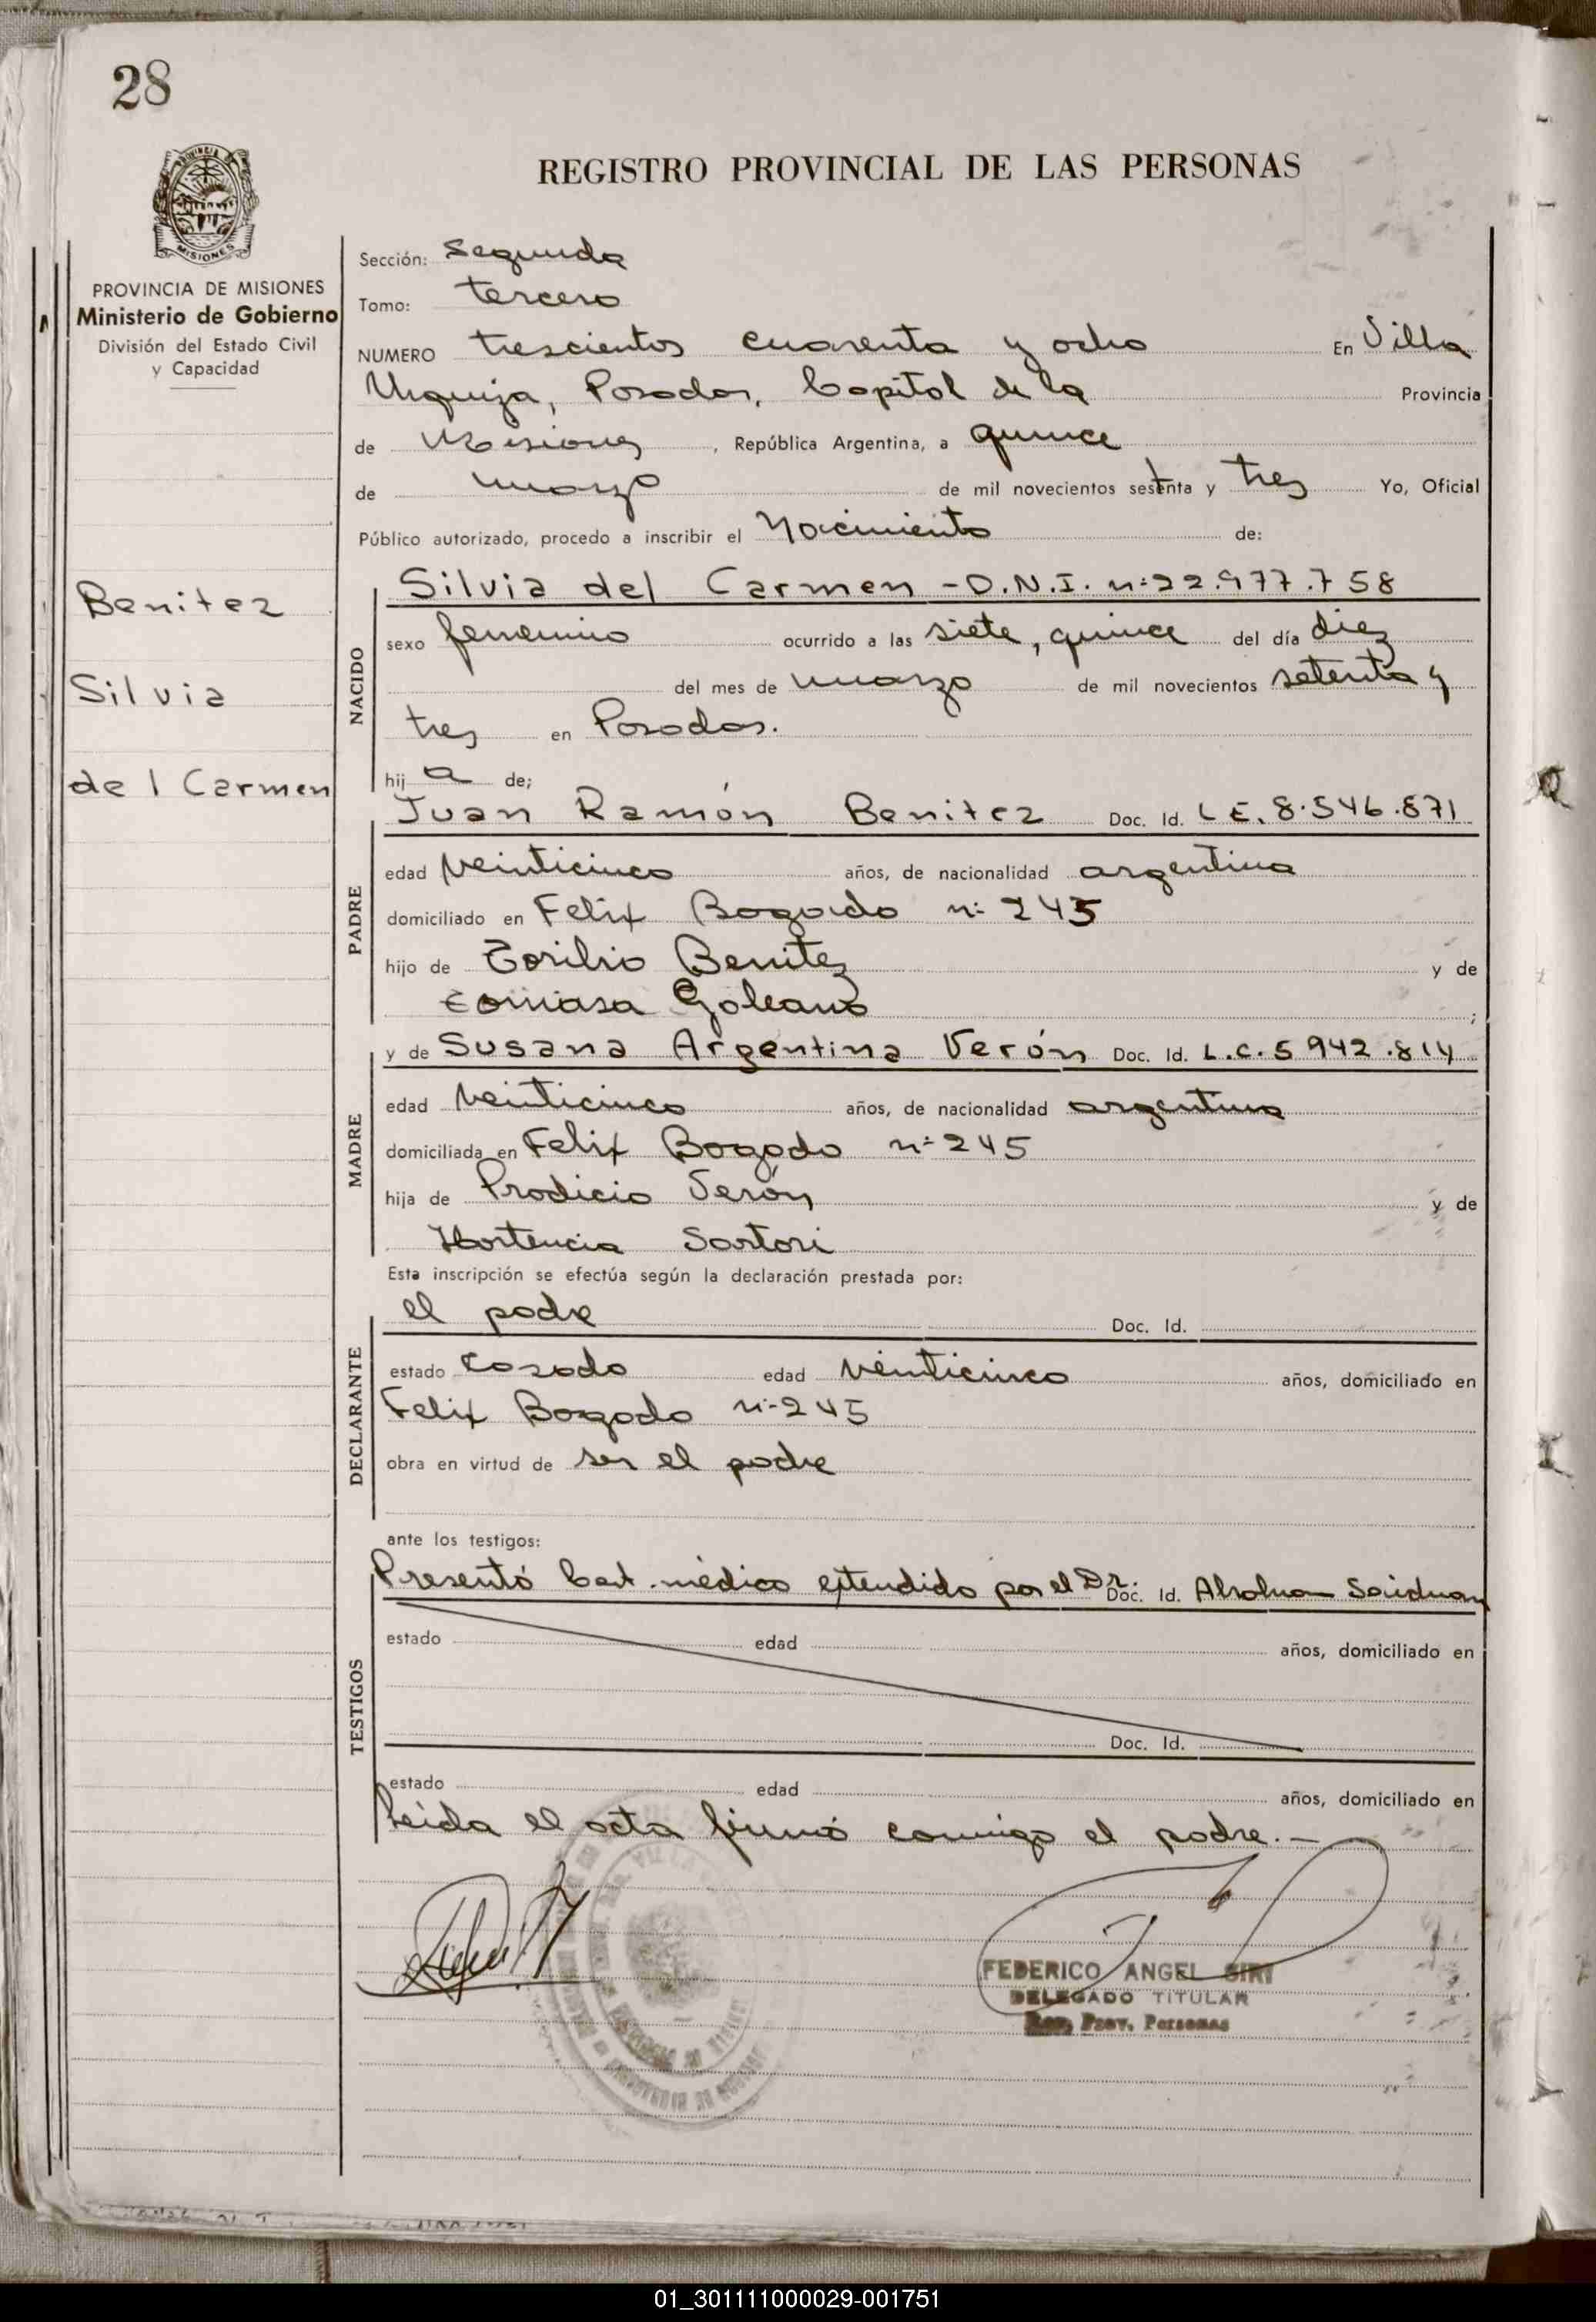 28
REGISTRO PROVINCIAL DE LAS PERSONAS
MISIONES
PROVINCIA DE MISIONES
Ministerio de Gobierno
División del Estado Civil
y Capacidad
Benitez
Silvia
del Carmen
Sección: Segunda
Tomo: tercero
NUMERO trescientos cuarenta y ocho En Villa
Urquiza, Posadas, Capital de la Provincia
de Misiones, República Argentina, a quince
de marzo de mil novecientos setenta y tres Yo, Oficial
Público autorizado, procedo a inscribir el Nacimiento de:
NACIDO
Silvia del Carmen - D.N.I. nº 22.977.758
sexo femenino ocurrido a las siete, quince del día diez
del mes de marzo de mil novecientos setenta y
tres en Posadas.
hij a de;
PADRE
Juan Ramón Benitez Doc. Id. L.E. 8.546.871
edad veinticinco años, de nacionalidad argentina
domiciliado en Felix Bogado nº 245
hijo de Benitez y de
Tomasa Galeano;
MADRE
y de Susana Argentina Verón Doc. Id. L.C. 5 942.814
edad veinticinco años, de nacionalidad argentina
domiciliada en Felix Bogado nº 245
hija de Prodicio Verón y de
Hortencia Sartori
Esta inscripción se efectúa según la declaración prestada por:
DECLARANTE
el padre Doc. Id.
estado casado edad veinticinco años, domiciliado en
Felix Bogado nº 245
obra en virtud de ser el padre
ante los testigos:
TESTIGOS
Presentó Cert. médico extendido por el Dr. Doc. Id.
estado edad años, domiciliado en
Doc. Id.
estado edad años, domiciliado en
Leida el acta firmó conmigo el padre.-
FEDERICO ANGEL SIRI
DELEGADO TITULAR
Reg. Prov. Personas
01_301111000029-001751